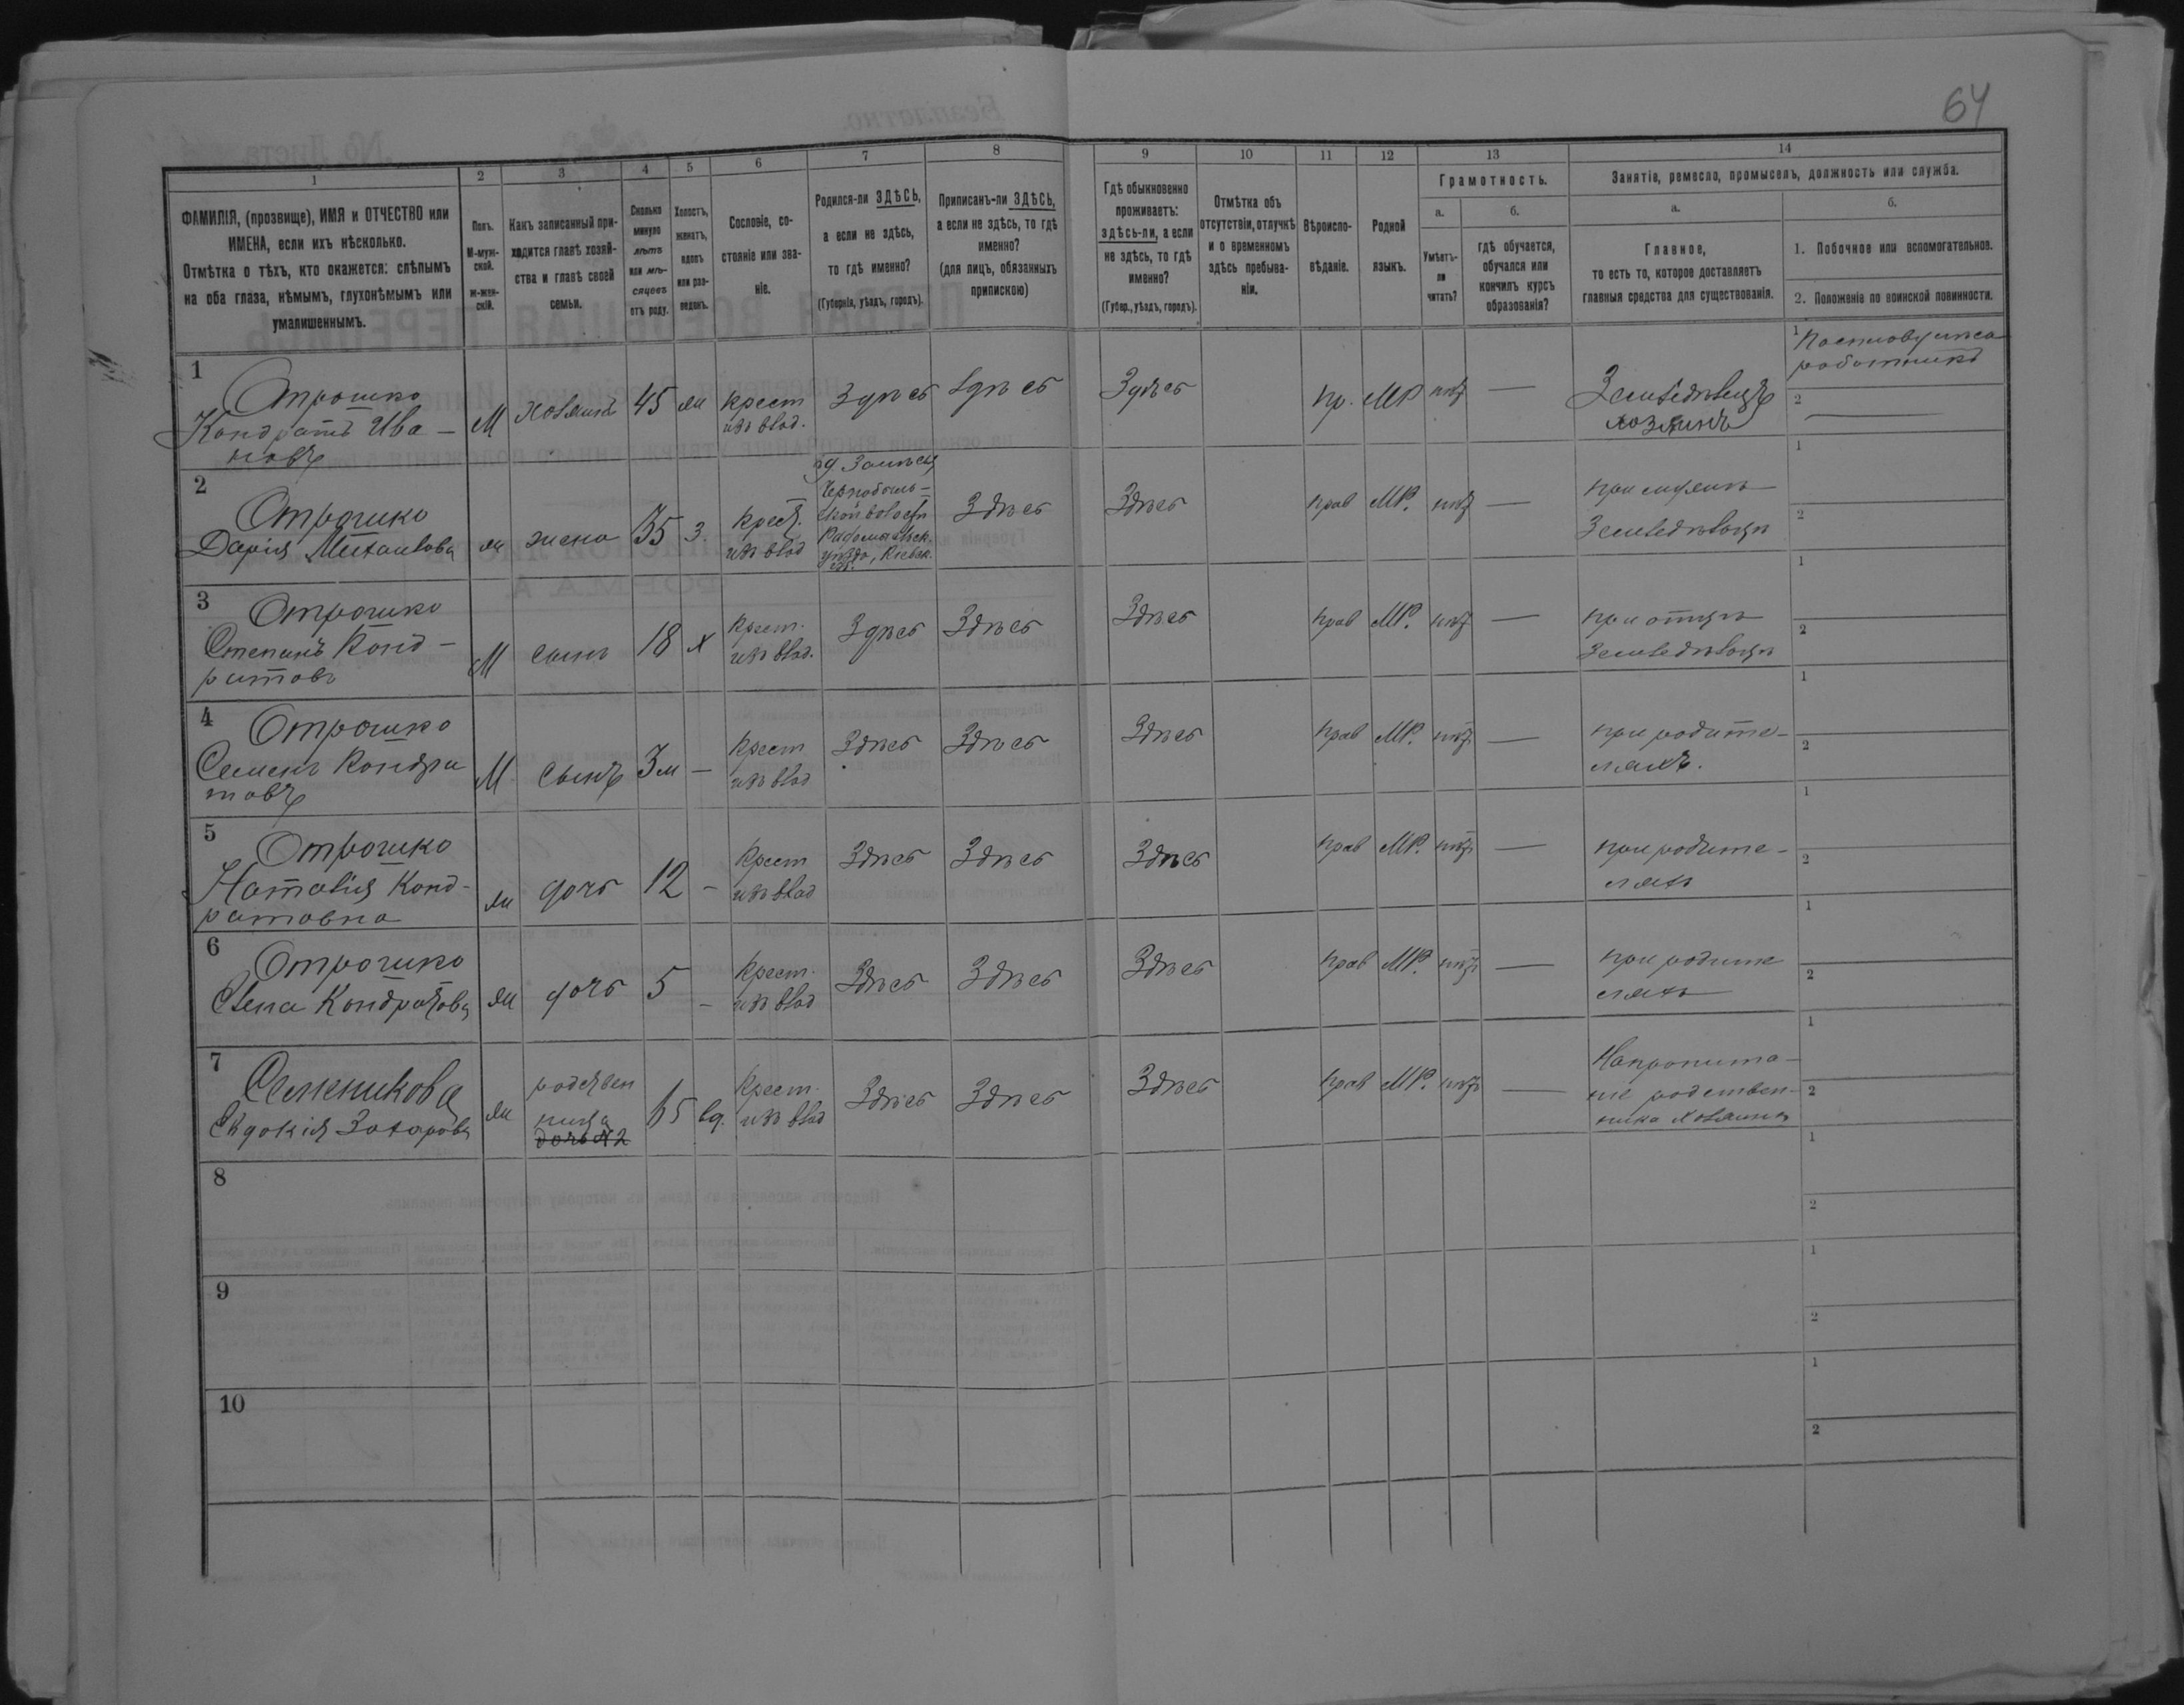 64
1 2 3 4 5 6 7 8 9 10 11 12 13 14
ФАМИЛІЯ, (прозвище), ИМЯ и ОТЧЕСТВО или
ИМЕНА, если ихъ нѣсколько.
Отмѣтка о тѣхъ, кто окажется: слѣпымъ
на оба глаза, нѣмымъ, глухонѣмымъ или
умалишеннымъ.
Полъ.
М-муж-
ской.
ж-жен-
скій.
Какъ записанный при-
ходится главѣ хозяй-
ства и главѣ своей
семьи.
Сколько
минуло
лѣтъ
или мѣ-
сяцевъ
отъ роду.
Холостъ,
женатъ,
вдовъ
или раз-
веденъ.
Сословіе, со-
стояніе или зва-
ніе.
Родился-ли ЗДѢСЬ,
а если не здѣсь,
то гдѣ именно?
(Губернія, уѣздъ, городъ).
Приписанъ-ли ЗДѢСЬ,
а если не здѣсь, то гдѣ
именно?
(для лицъ, обязанныхъ
припискою)
Гдѣ обыкновенно
проживаетъ:
здѣсь-ли, а если
не здѣсь, то гдѣ
именно?
(Губер., уѣздъ, городъ).
Отмѣтка объ
отсутствіи, отлучкѣ
и о временномъ
здѣсь пребыва-
ніи.
Вѣроиспо-
вѣданіе.
Родной
языкъ.
Грамотность.
а.
Умѣетъ-
ли
читать?
б.
гдѣ обучается,
обучался или
кончилъ курсъ
образованія?
Занятіе, ремесло, промыселъ, должность или служба.
а.
Главное,
то есть то, которое доставляетъ
главныя средства для существованія.
б.
1. Побочное или вспомогательное.
2. Положеніе по воинской повинности.
1
Отрошко
Кондратъ Ива-
новъ
М
хозяинъ
45
ж
крест
изъ влад.
Здѣсь
Здѣсь
Здѣсь
пр.
МР
нѣт
—
Земледѣлецъ
хозяинъ
1
работникъ
2 —
2
Отрошко
Дарія Михаилова
ж
жена
35
З.
Крест.
изъ влад
Чернобыль-
ской волости
Радомысльск.
уѣзда, Киевск.
Здѣсь
Здѣсь
прав
МР.
нѣт
—
при мужѣ
Земледѣльцѣ
1
2
3
Отрошко
Степанъ Конд-
ратовъ
М
сынъ
18
х
Крест.
изъ влад.
Здѣсь
Здѣсь
Здѣсь
прав
МР.
нѣт
—
при отцѣ
Земледѣльцѣ
1
2
4
Отрошко
Семенъ Кондра
товъ
М
сынъ
3 м
—
Крест
изъ влад
Здѣсь
Здѣсь
Здѣсь
прав
МР.
нѣт
—
при родите-
ляхъ.
1
2
5
Отрошко
Наталія Конд-
ратовна
ж
дочь
12
—
Крест
изъ влад
Здѣсь
Здѣсь
Здѣсь
прав
МР.
нѣт
—
при родите-
ляхъ
1
2
6
Отрошко
Елена Кондратова
ж
дочь
5
—
Крест.
изъ влад
Здѣсь
Здѣсь
Здѣсь
прав
МР.
нѣт
—
при родите
ляхъ
1
2
7
Семеникова
Евдокія Захарова
ж
родствен
ница
дочь №2
65
вд.
Крест.
изъ влад
Здѣсь
Здѣсь
Здѣсь
прав
МР.
нѣт
—
На пропита-
ніе родствен-
ника хозяина
1
2
8
1
2
9
1
2
10
1
2